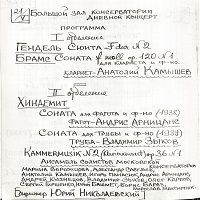 21/V Большой зал консерватории
Дневной концерт
программа
I отделение
Гендель Сюита F dur №2
Брамс Соната f moll op.120 №1
для кларнета и ф-но
кларнет-Анатолий Камышев
II отделение
Хиндемит
Соната для фагота и ф-но (1938)
Фагот-Андрис Арницанс
Соната для трубы и ф-но (1939)
труба-Владимир Зыков
Kammermusik №2 op.36 №1
Ансамбль солистов Московской
Марина Ворожцова, Александр
Анатолий Камышев, Игорь
Андрей Кузнецов, Владимир Зыков, Олег
Сергей Бусченко, Юрий Башмет, Борис
Дирижер Юрий Николаевский